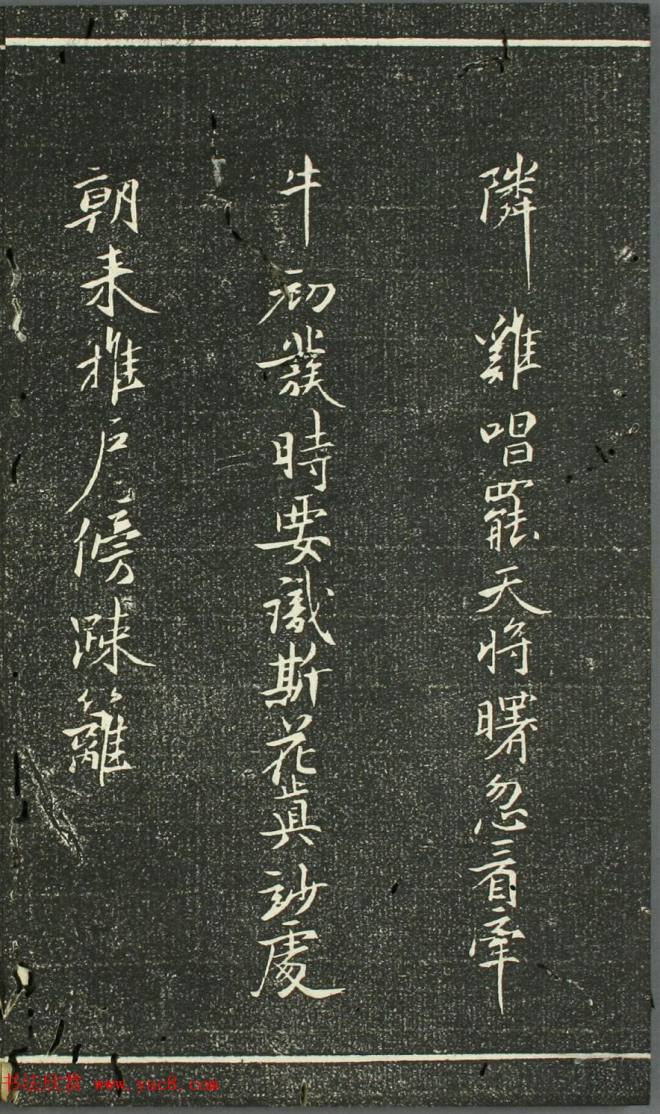 隣雞唱罷天将曙忽看牽
牛初發時要識斯花真妙處
朝来推戸傍疎籬
书法欣赏 www.yac8.com